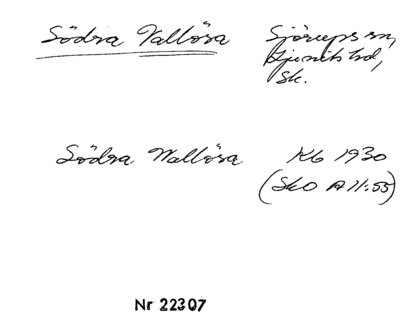 Södra Vallösa Sjörups sn,
Ljunits hd,
Sk.
Södra Wallösa Kb 1930
(SkO A 11:55)
Nr 22307